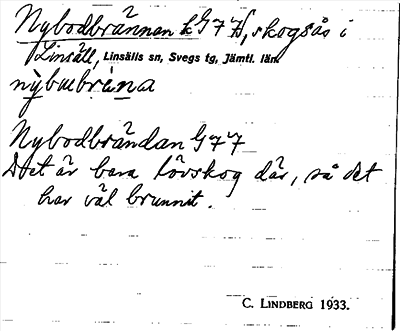 Nybodbrännan G77, skogsås i
Linsäll, Linsälls sn, Svegs tg, Jämtl. län
Nybodbrändan G77
Det är bara lövskog där, så det
har väl brunnit.
C. LINDBERG 1933.